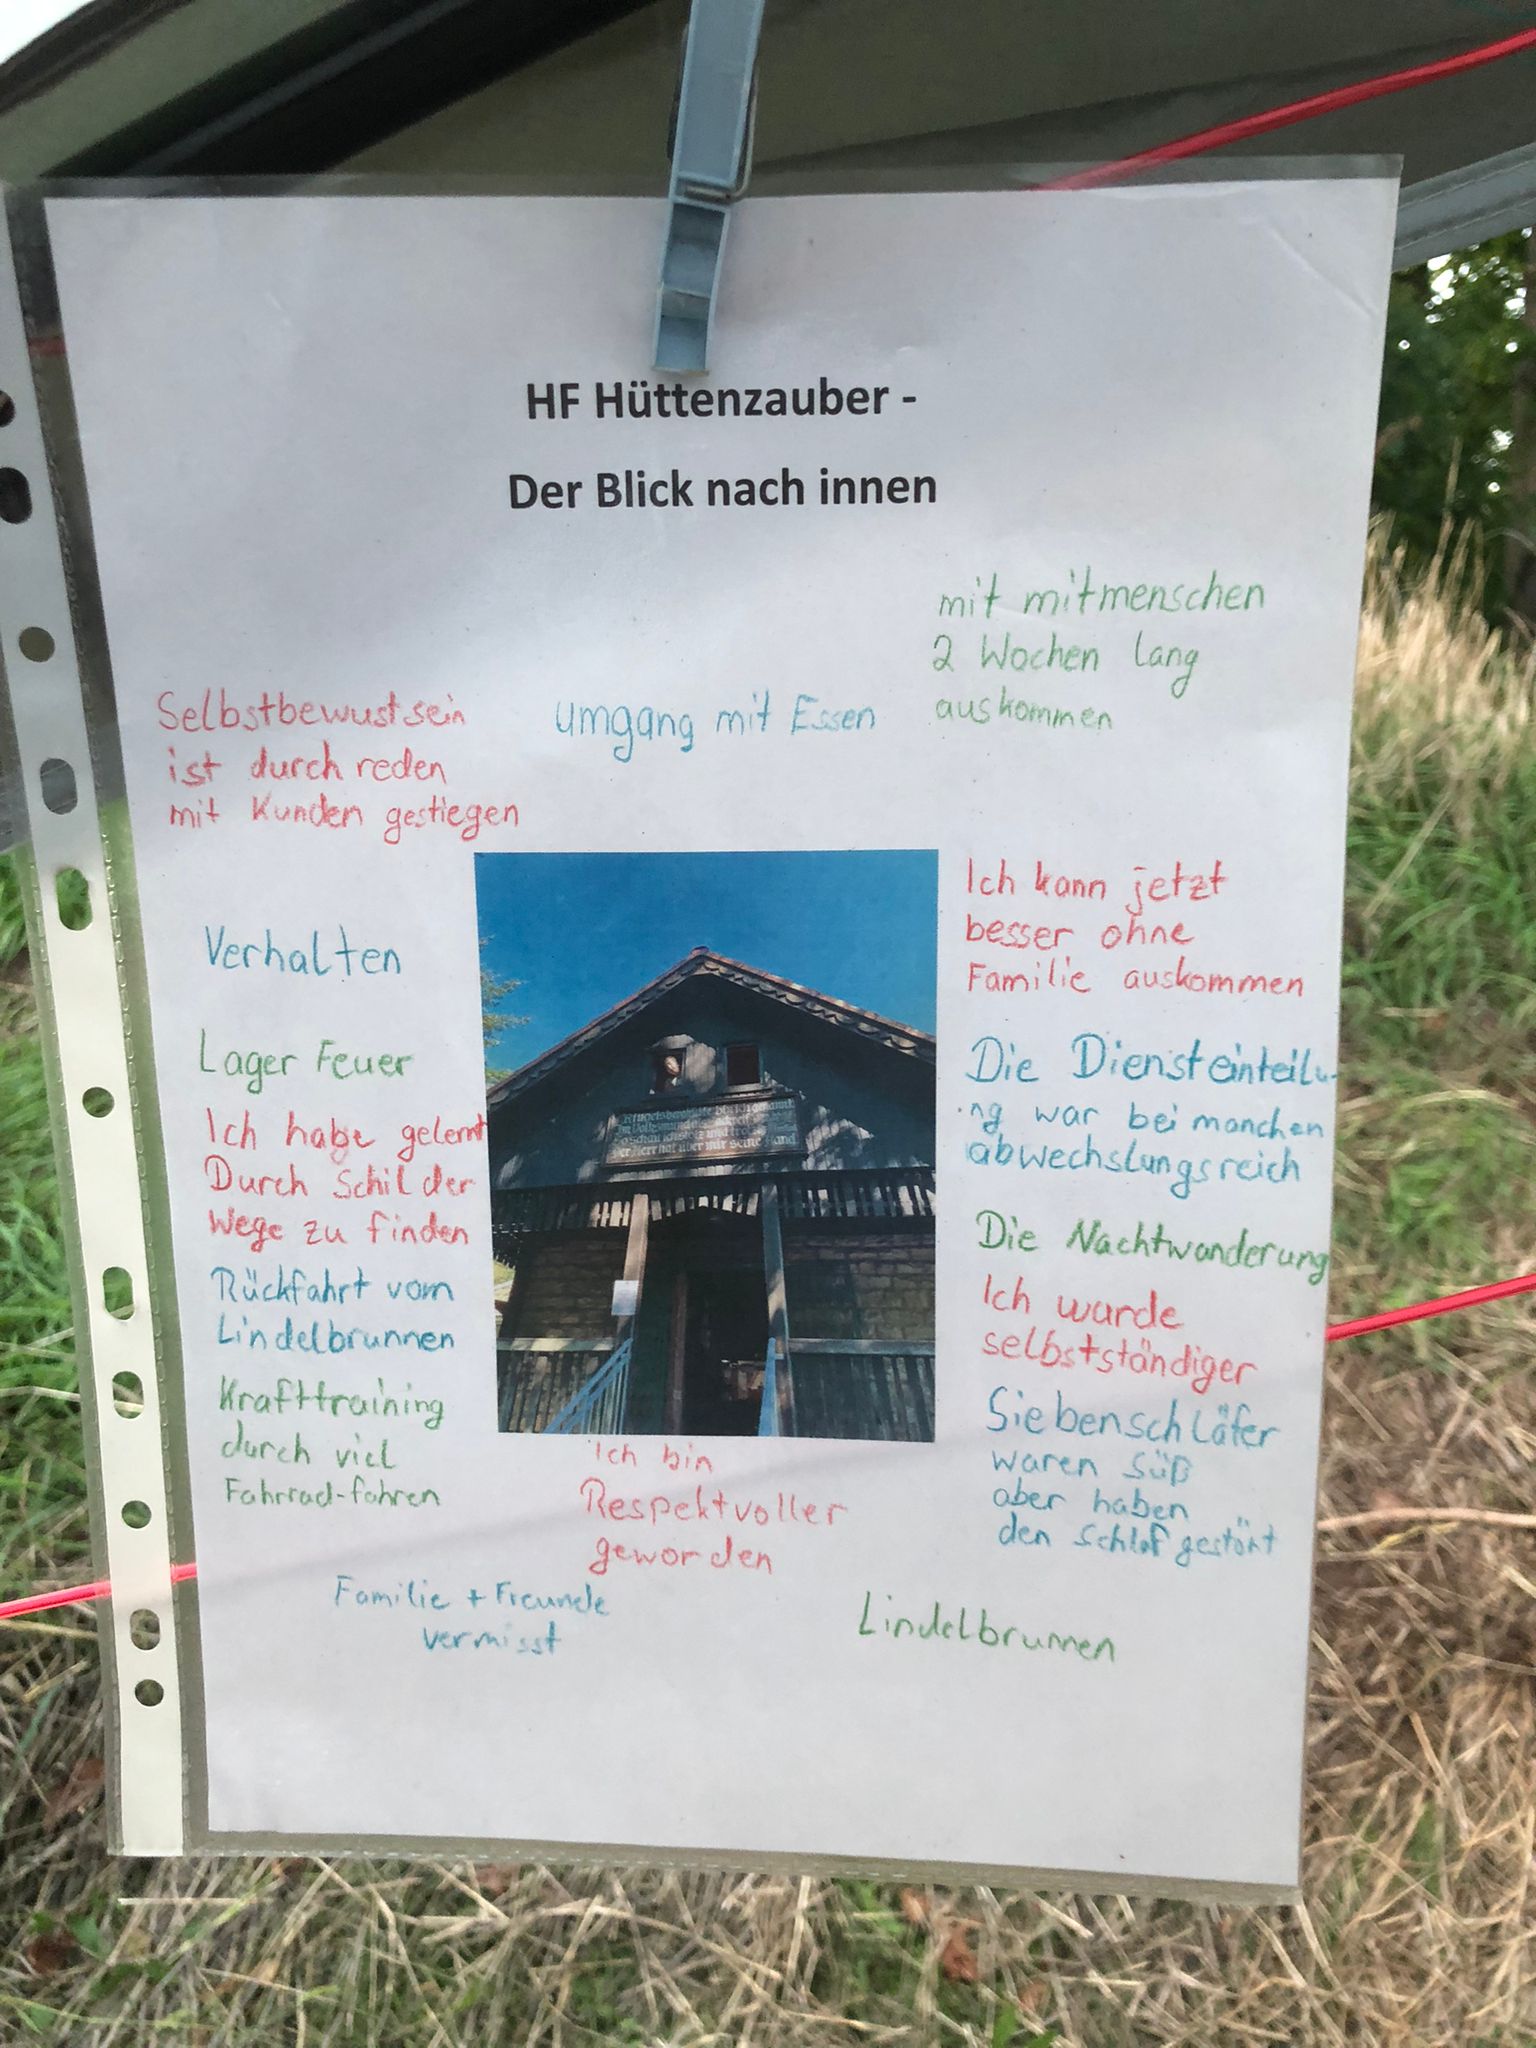 HF Hüttenzauber -
Der Blick nach innen
mit mitmenschen
2 Wochen lang
auskommen
Selbstbewustsein
ist durch reden
mit Kunden gestiegen
umgang mit Essen
Ich kann jetzt
besser ohne
Familie auskommen
Verhalten
Lager Feuer
Ich habe gelernt
Durch Schilder
Wege zu finden
Rückfahrt vom
Lindelbrunnen
Krafttraining
durch viel
Fahrrad-fahren
Die Diensteinteilu-
ng war bei manchen
abwechslungsreich
Die Nachtwanderung
Ich wurde
selbstständiger
Siebenschläfer
waren süß
aber haben
den Schlaf gestört
Ich bin
Respektvoller
geworden
Familie + Freunde
vermisst
Lindelbrunnen